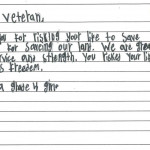 Veteran,
for risking your life to save
for saving our land. We are
and strength. You risked your
freedom.
a grade 4 girl